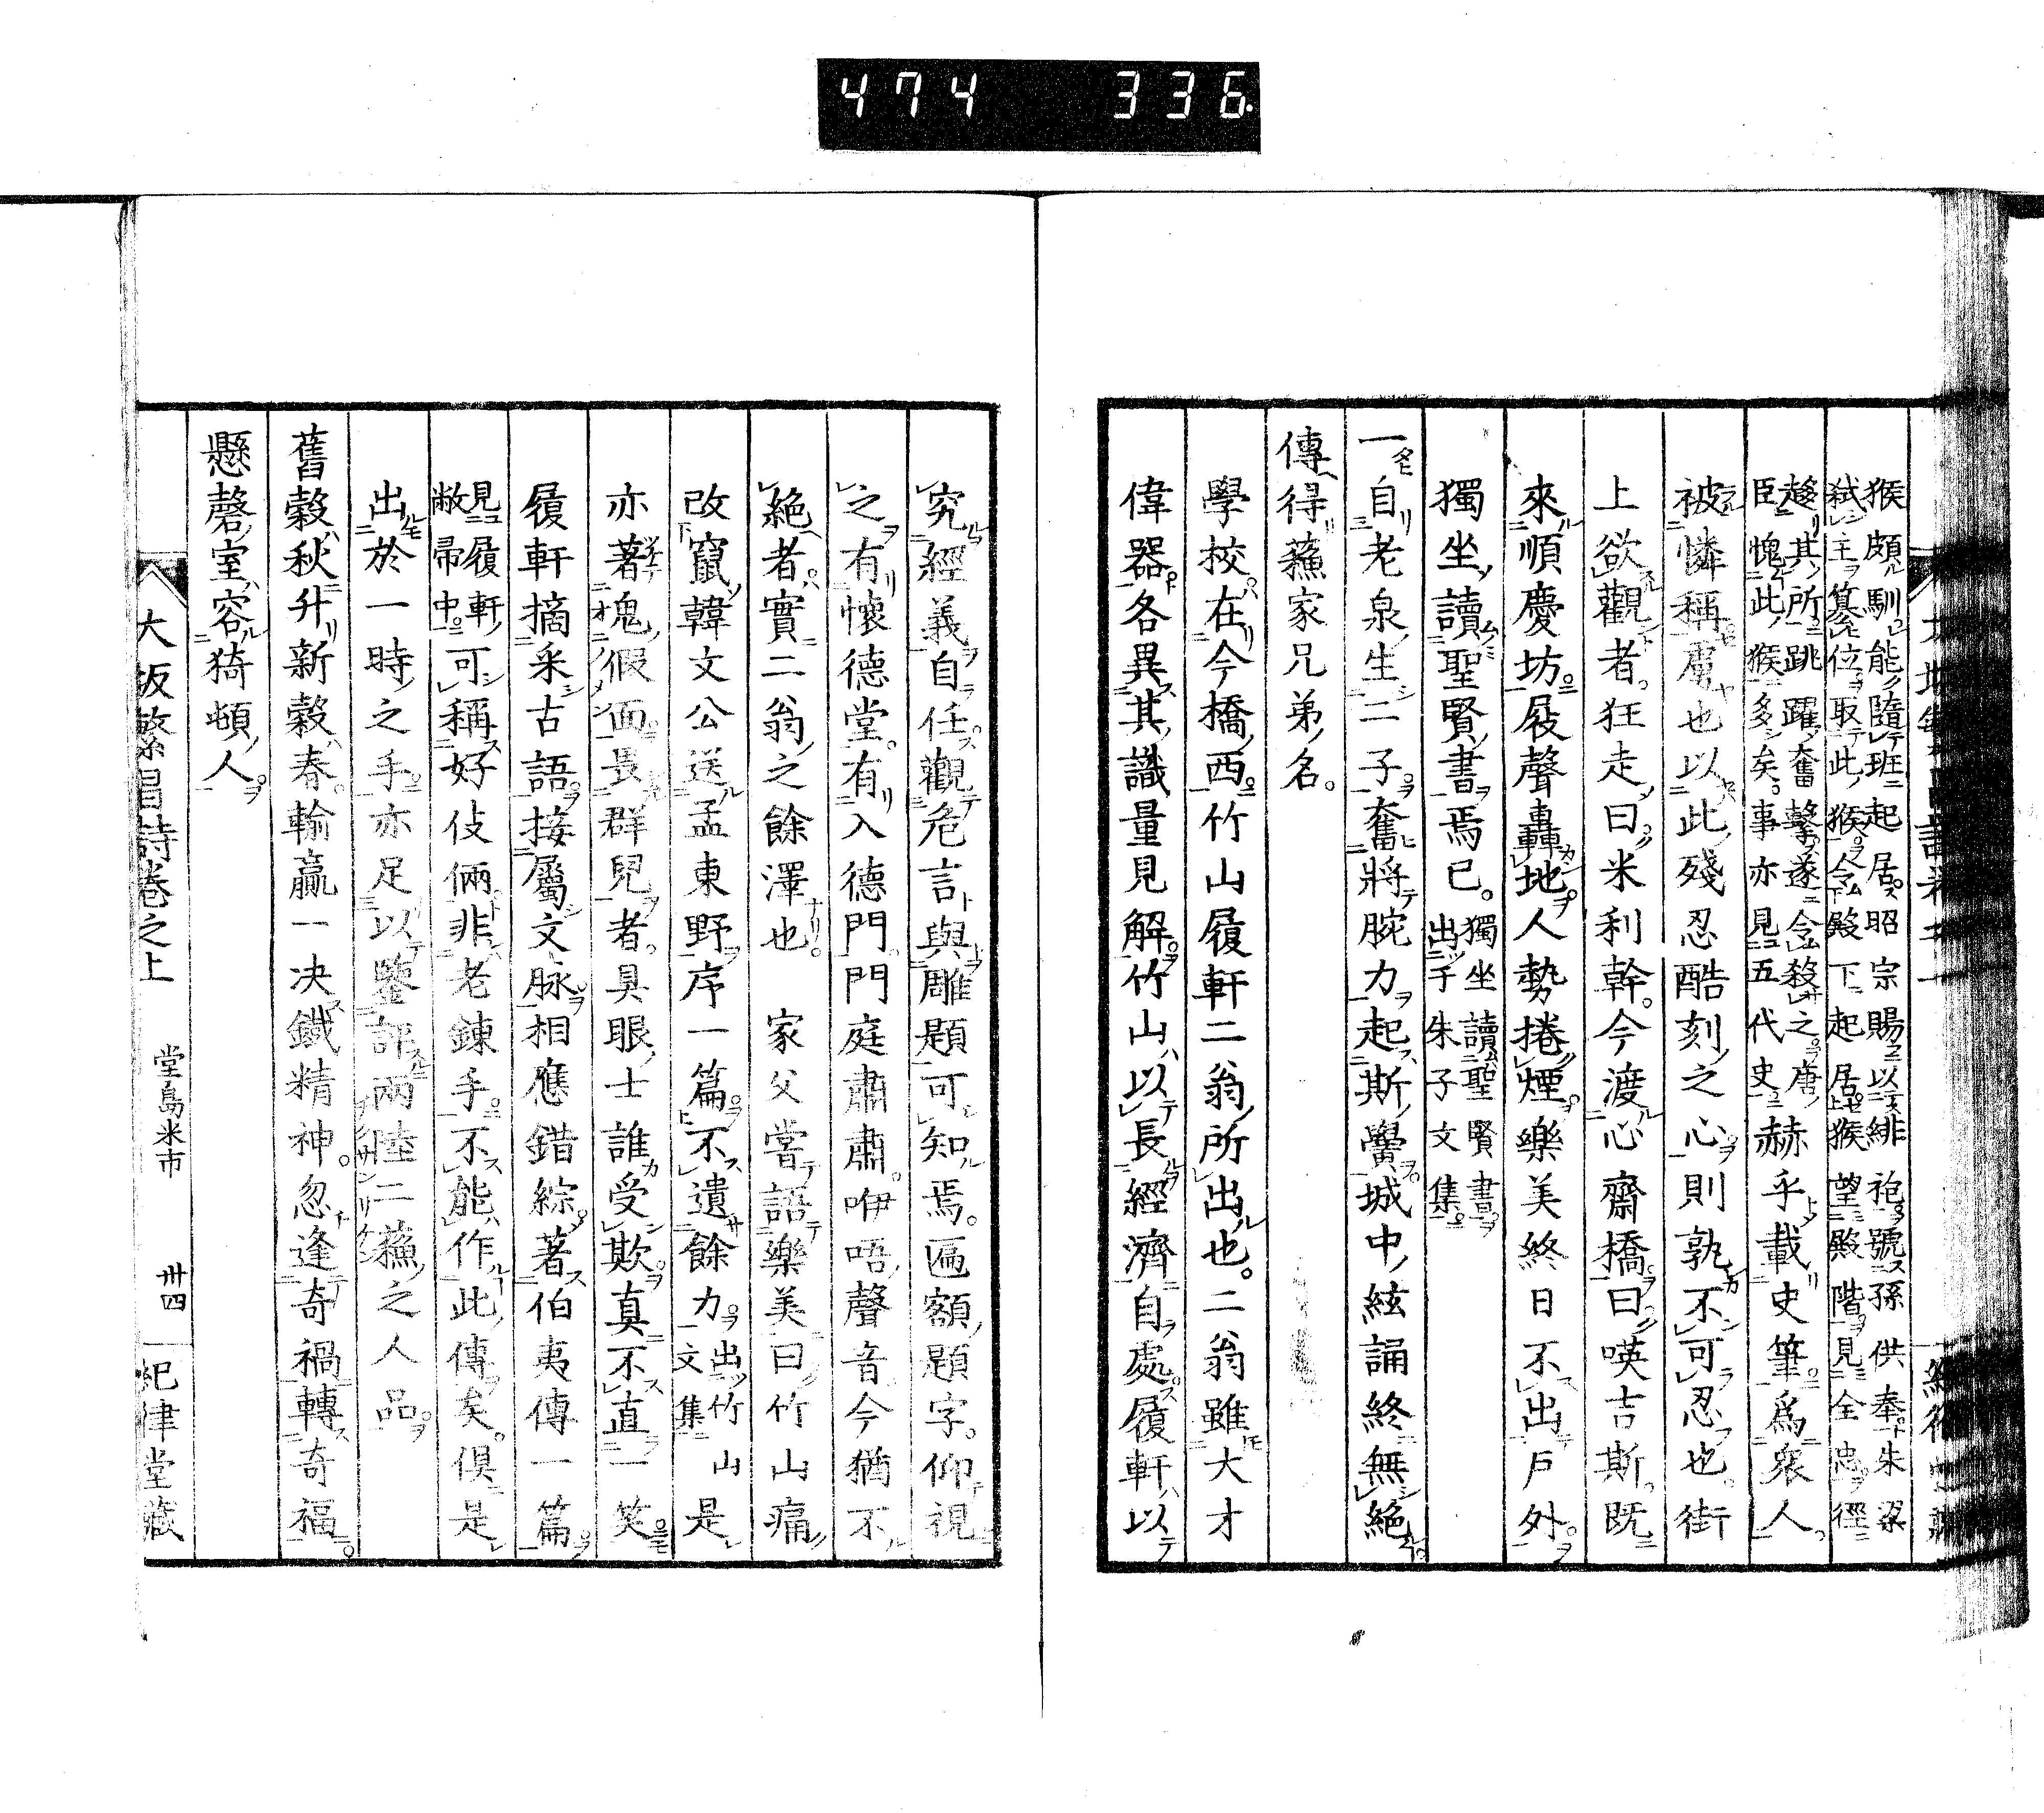 474 336.
猴頗馴能隨班起居昭宗賜以緋袍號孫供奉朱梁
弑主簒位取此猴令殿下起居猴望殿階見全忠徑
趍其所跳躍奮擊遂令殺之唐
臣愧此猴多矣事亦見五代史赫乎載史筆爲衆人
被憐稱焉也以此殘忍酷刻之心則孰不可忍也街
上欲觀者狂走曰米利幹今渡心齋橋曰𠸄吉斯既
來順慶坊屐聲轟地人勢捲煙樂美終日不出戸外
獨坐讀聖賢書焉已獨坐讀聖賢書
出于朱子文集
一自老泉生二子奮將腕力起斯黌城中絃誦終無絶
傳得蘓家兄弟名
學校在今橋西竹山履軒二翁所出也二翁雖大才
偉器各異其識量見解竹山以長經濟自處履軒以
究經義自任觀危言與雕題可知焉匾額題字仰視
之有懷德堂有入德門門庭肅肅咿唔聲音今猶不
絶者實二翁之餘澤也 家父嘗語樂美曰竹山痛
改竄韓文公送孟東野序一篇不遺餘力出竹山
文集是
亦著塊假面畏群兒者具眼士誰受欺真不直一笑
履軒摘采古語接屬文脉相應錯綜著伯夷傳一篇
見履軒
敝帚中可稱好伎倆非老鍊手不能作此傳矣俱是
出於一時之手亦足以鑒部兩陸二蘓之人品
舊穀秋升新穀春輸贏一决鐵精神忽逢奇禍轉奇福
懸磬室容猗頓人
大坂繁昌詩卷之上 堂島米市 卅四 紀律堂藏